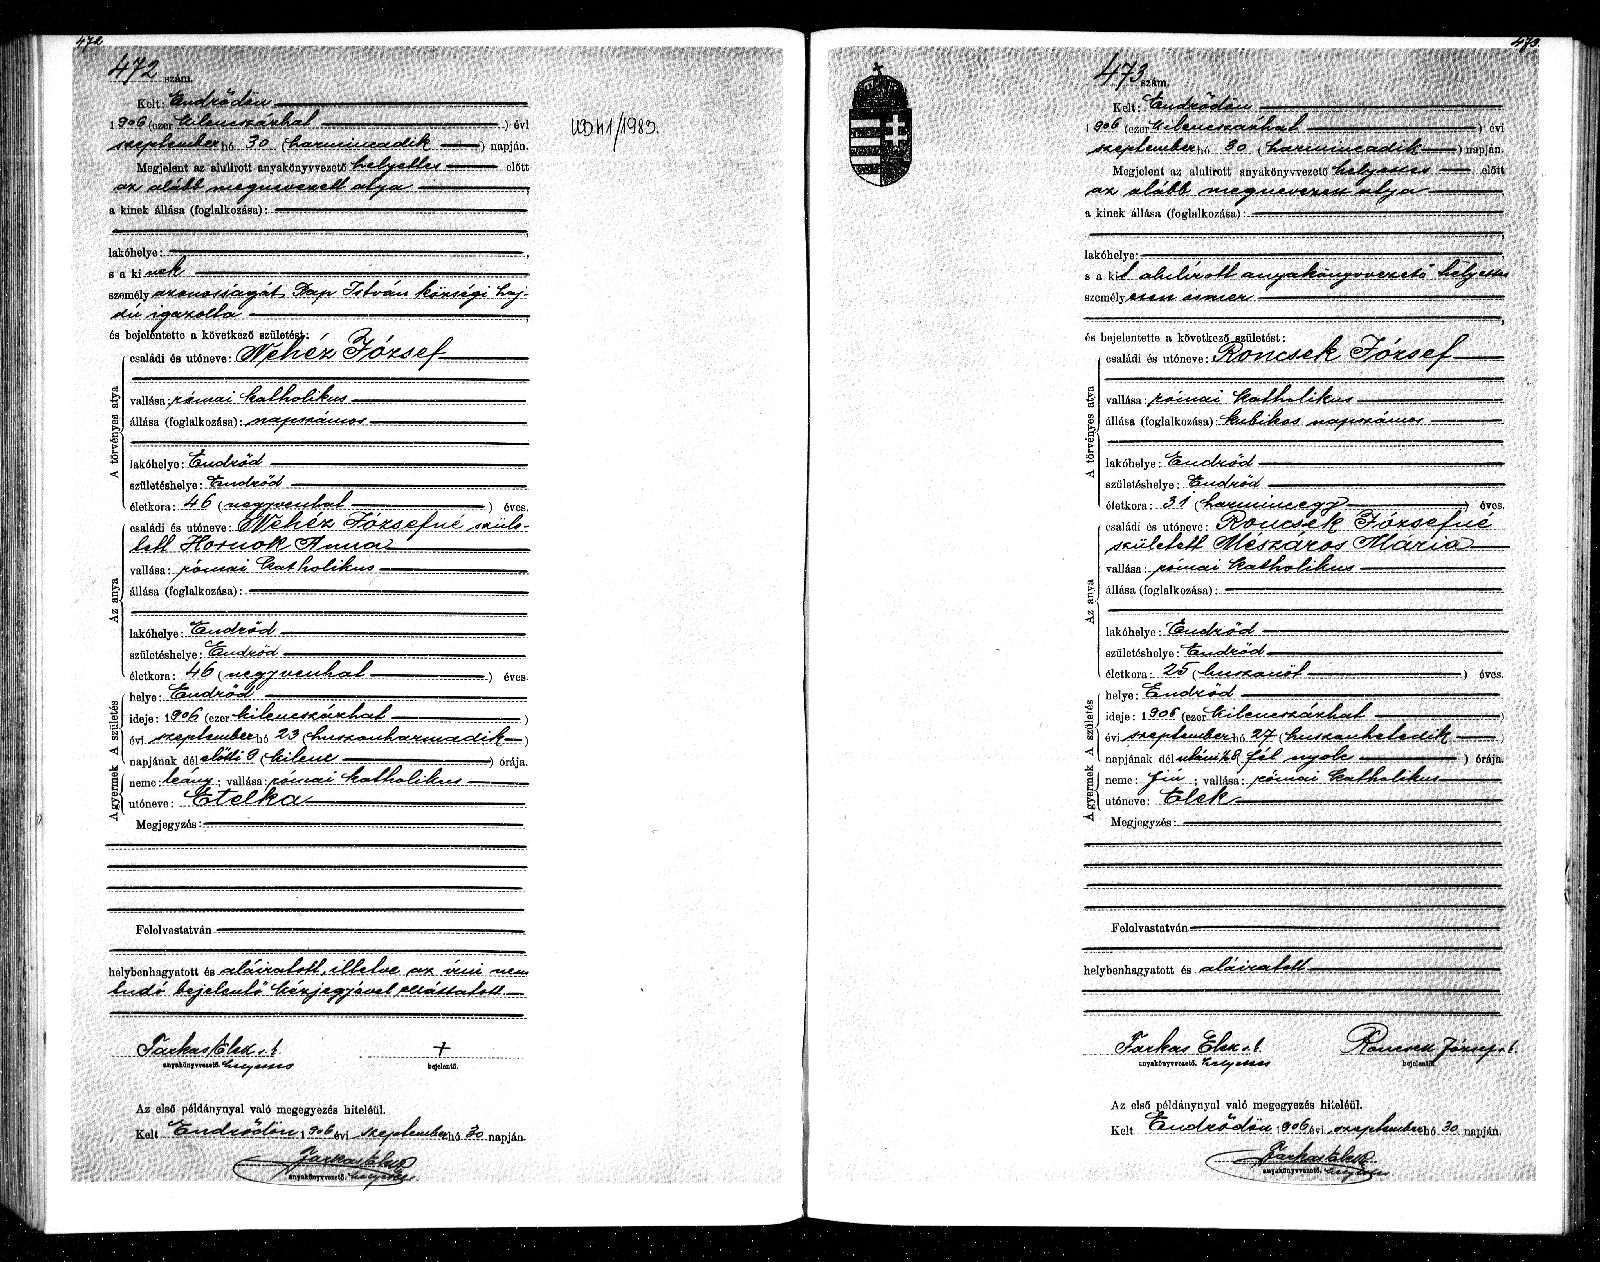 472
472 szám.
Kelt: Endrődön
1906 (ezer kilencszázhat) évi
szeptember hó 30 (harmincadik) napján.
Megjelent az alulirott anyakönyvvezető helyettes előtt
az alább megnevezett atya
a kinek állása (foglalkozása):
lakóhelye:
s a kinek
személy azonosságát Pap István községi haj-
dú igazolta
és bejelentette a következő születést:
A törvényes atya
családi és utóneve: Vehéz József
vallása: római katholikus
állása (foglalkozása): napszámos
lakóhelye: Endrőd
születéshelye: Endrőd
életkora: 46 (negyvenhat) éves.
Az anya
családi és utóneve: Vehéz Józsefné szüle-
tett Hornok Anna
vallása: római katholikus
állása (foglalkozása):
lakóhelye: Endrőd
születéshelye: Endrőd
életkora: 46 (negyvenhat) éves.
A születés
helye: Endrőd
ideje: 1906 (ezer kilencszázhat)
évi szeptember hó 23 (huszonharmadik)
napjának dél előtti 9 (kilenc) órája.
A gyermek
neme: leány; vallása: római katholikus
utóneve: Etelka
Megjegyzés:
Felolvastatván
helybenhagyatott és aláiratott, illetve az írni nem
tudó bejelentő kézjegyével elláttatott
Farkas Elek s.k. +
anyakönyvvezető. helyettes bejelentő.
Az első példánynyal való megegyezés hiteléül.
Kelt Endrődön 1906 évi szeptember hó 30 napján.
Farkas Elek
anyakönyvvezető. helyettes
473
473 szám.
Kelt: Endrődön
1906 (ezer kilencszázhat) évi
szeptember hó 30 (harmincadik) napján.
Megjelent az alulirott anyakönyvvezető helyettes előtt
az alább megnevezett atya
a kinek állása (foglalkozása):
lakóhelye:
s a kit alulírott anyakönyvvezető helyettes
személyesen ösmer
és bejelentette a következő születést:
A törvényes atya
családi és utóneve: Roncsek József
vallása: római katholikus
állása (foglalkozása): kubikos napszámos
lakóhelye: Endrőd
születéshelye: Endrőd
életkora: 31 (harmincegy) éves.
Az anya
családi és utóneve: Roncsek Józsefné
született Mészáros Mária
vallása: római katholikus
állása (foglalkozása):
lakóhelye: Endrőd
születéshelye: Endrőd
életkora: 25 (huszonöt) éves.
A születés
helye: Endrőd
ideje: 1906 (ezer kilencszázhat)
évi szeptember hó 27 (huszonhetedik)
napjának dél utáni ½8 (fél nyolc) órája.
A gyermek
neme: fiú; vallása: római katholikus
utóneve: Elek
Megjegyzés:
Felolvastatván
helybenhagyatott és aláiratott
Farkas Elek s.k. Roncsek József s.k.
anyakönyvvezető. helyettes bejelentő.
Az első példánynyal való megegyezés hiteléül.
Kelt Endrődön 1906 évi szeptember hó 30 napján.
Farkas Elek
anyakönyvvezető. helyettes